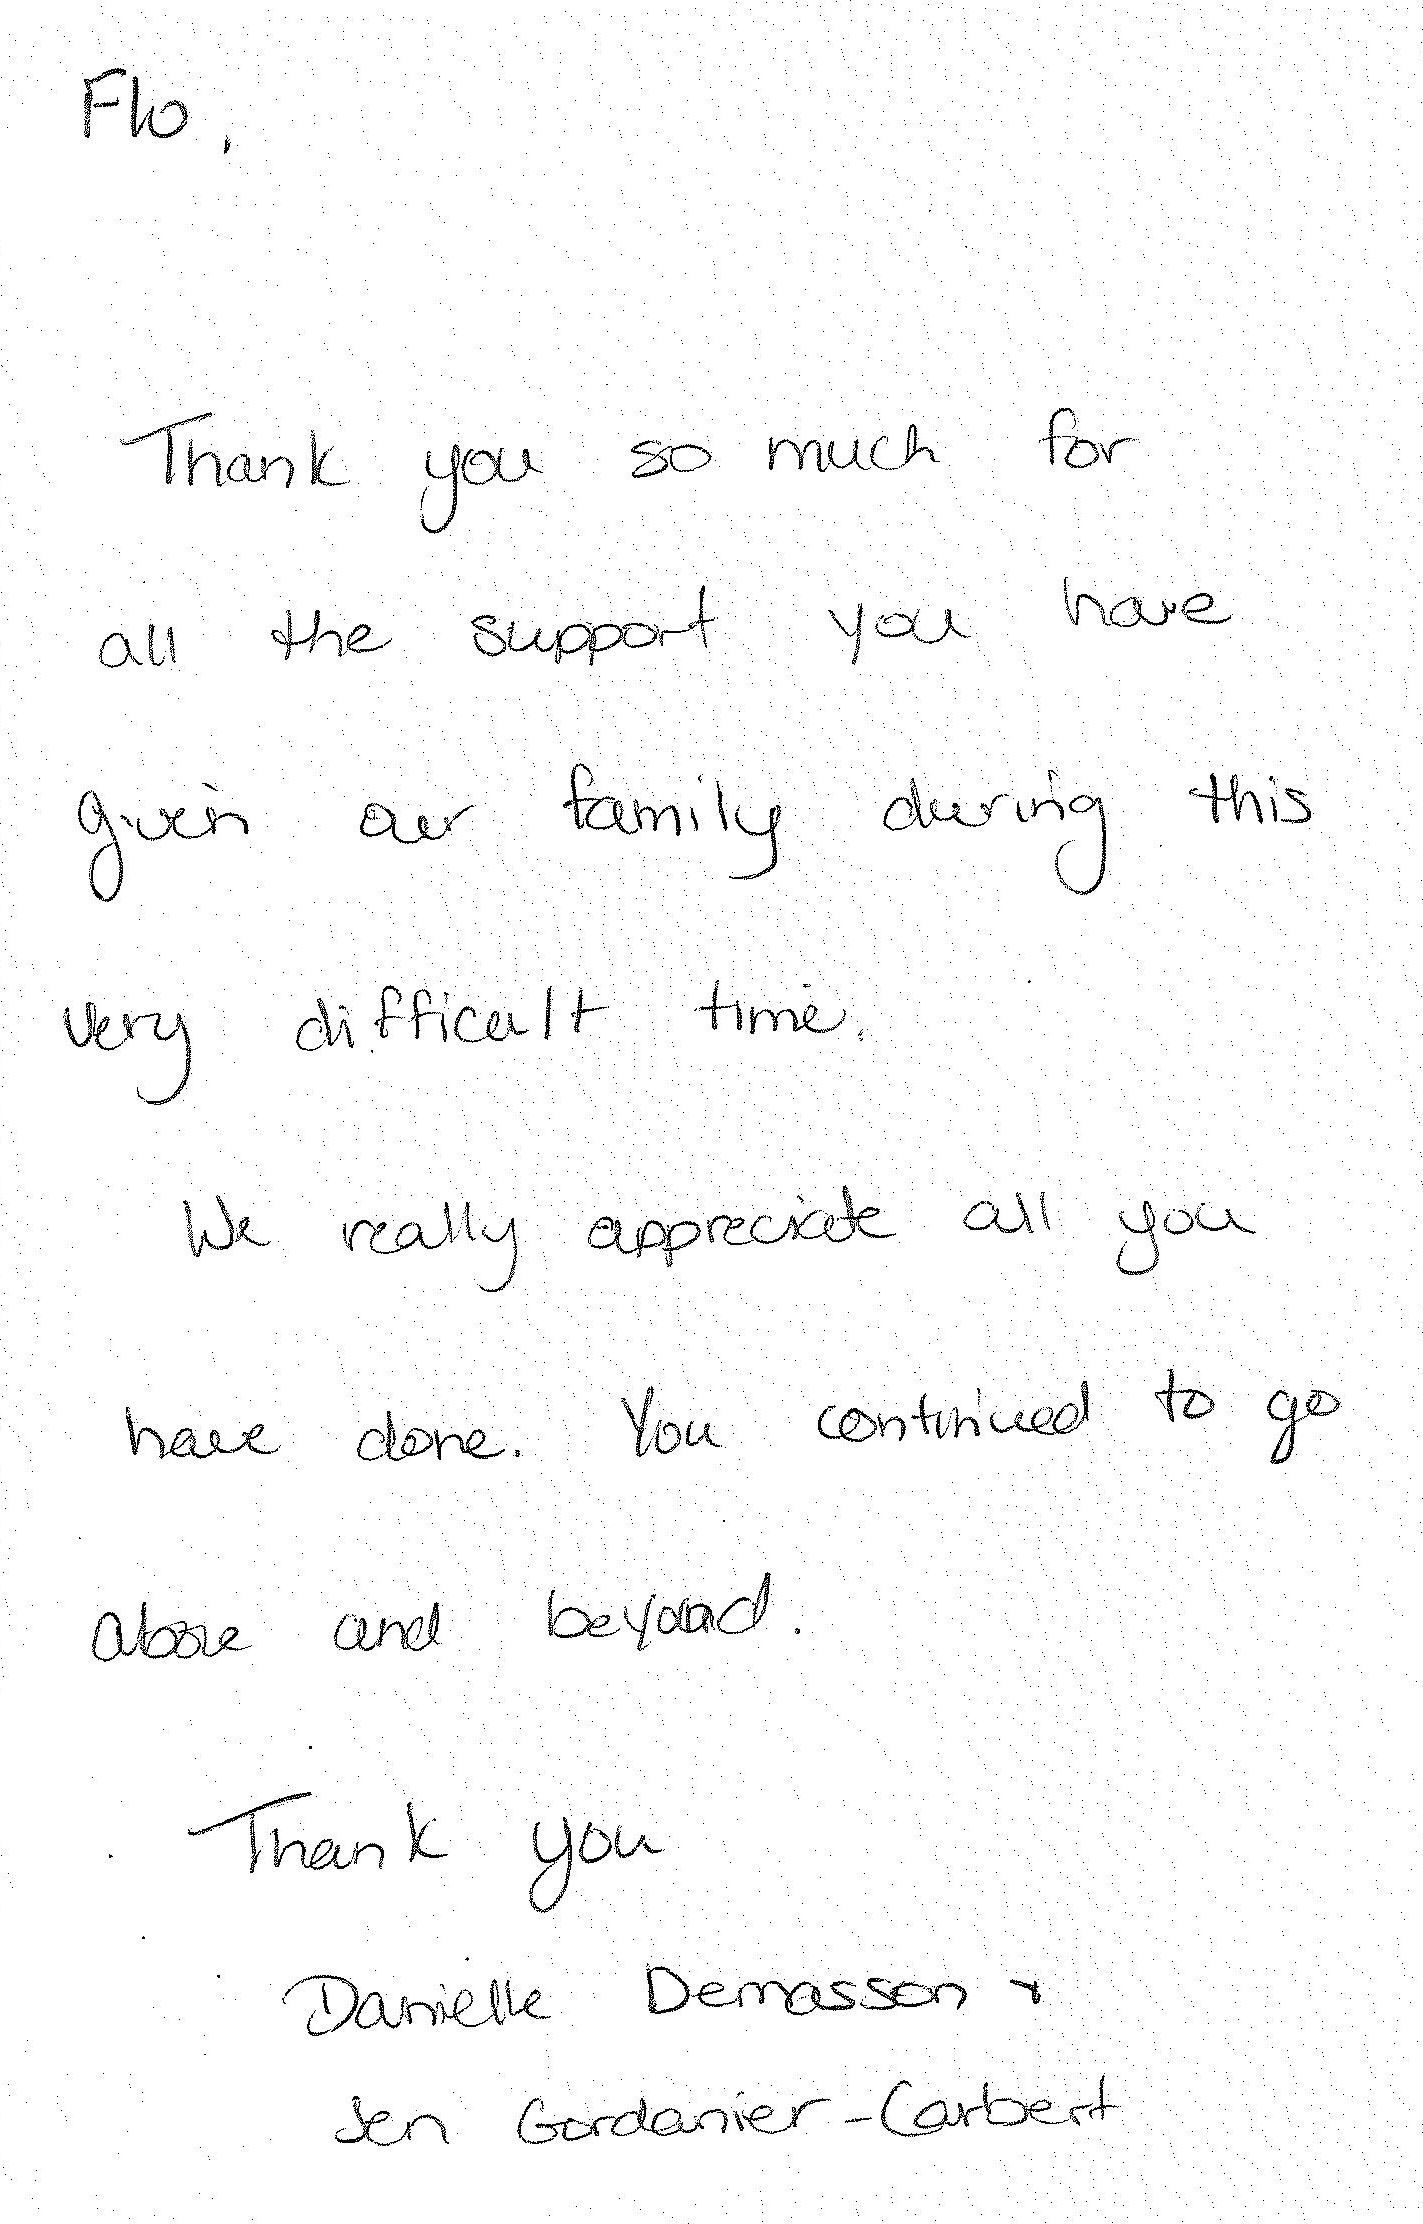 Flo,
Thank you so much for
all the support you have
given our family during this
very difficult time.
We really appreciate all you
have done. You continued to go
above and beyond.
Thank you
Danielle Demasson +
Jen Gordanier-Carbert